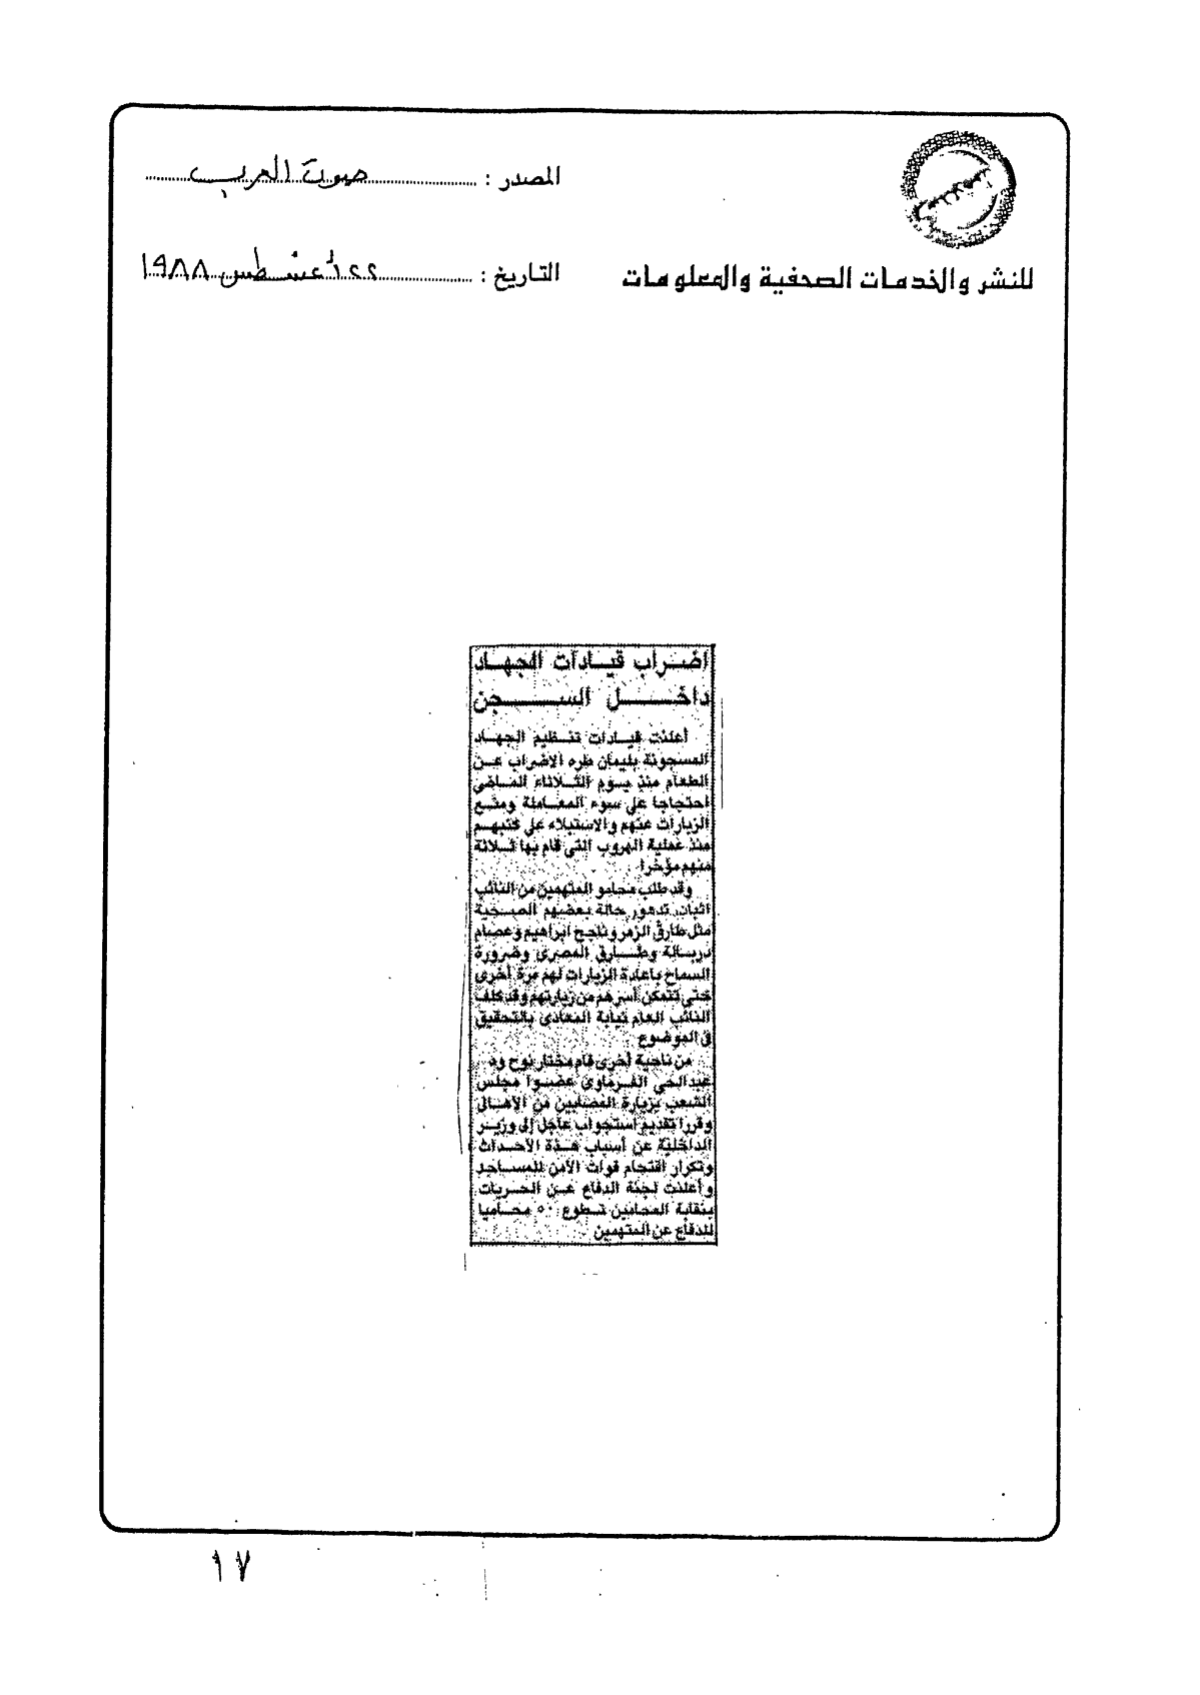 المصدر : صوت العرب
التاريخ : ٢٢ أغسطس ١٩٨٨
للنشر والخدمات الصحفية والمعلومات
اضراب قيادات الجهاد
داخل السجن
أعلنت قيادات تنظيم الجهاد
المسجونة بليمان طره الاضراب عن
الطعام منذ يوم الثلاثاء الماضى
احتجاجا على سوء المعاملة ومنع
الزيارات عنهم والاستيلاء على كتبهم
منذ عملية الهروب التى قام بها ثلاثة
منهم مؤخرا
وقد طلب محامو المتهمين من النائب
اثبات تدهور حالة بعضهم الصحية
مثل طارق الزمر وناجح ابراهيم وعصام
دربالة وطارق المصرى وضرورة
السماح باعادة الزيارات لهم مرة أخرى
حتى تتمكن أسرهم من زيارتهم وقد كلف
النائب العام نيابة المعادى بالتحقيق
فى الموضوع
من ناحية أخرى قام مختار نوح ود
عبدالحى الفرماوى عضوا مجلس
الشعب بزيارة المصابين من الأهالى
وقررا تقديم استجواب عاجل إلى وزير
الداخلية عن أسباب هذة الأحداث
وتكرار اقتحام قوات الأمن للمساجد
وأعلنت لجنة الدفاع عن الحريات
بنقابة المحامين تطوع ٥٠ محاميا
للدفاع عن المتهمين
١٧